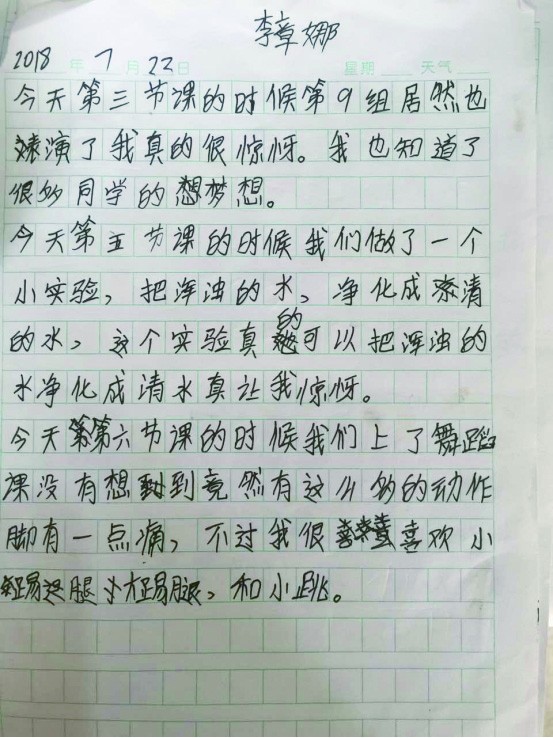 李章娜
2018年7月22日 星期 天气
今天第三节课的时候第9组居然也
表演了我真的很惊讶。我也知道了
很多同学的想梦想。
今天第五节课的时候我们做了一个
小实验，把浑浊的水，净化成清
的水，这个实验真的可以把浑浊的
水净化成清水真让我惊讶。
今天第六节课的时候我们上了舞蹈
课没有想到竟然有这么多的动作
脚有一点痛，不过我很喜欢小
踢腿大踢腿，和小跳。